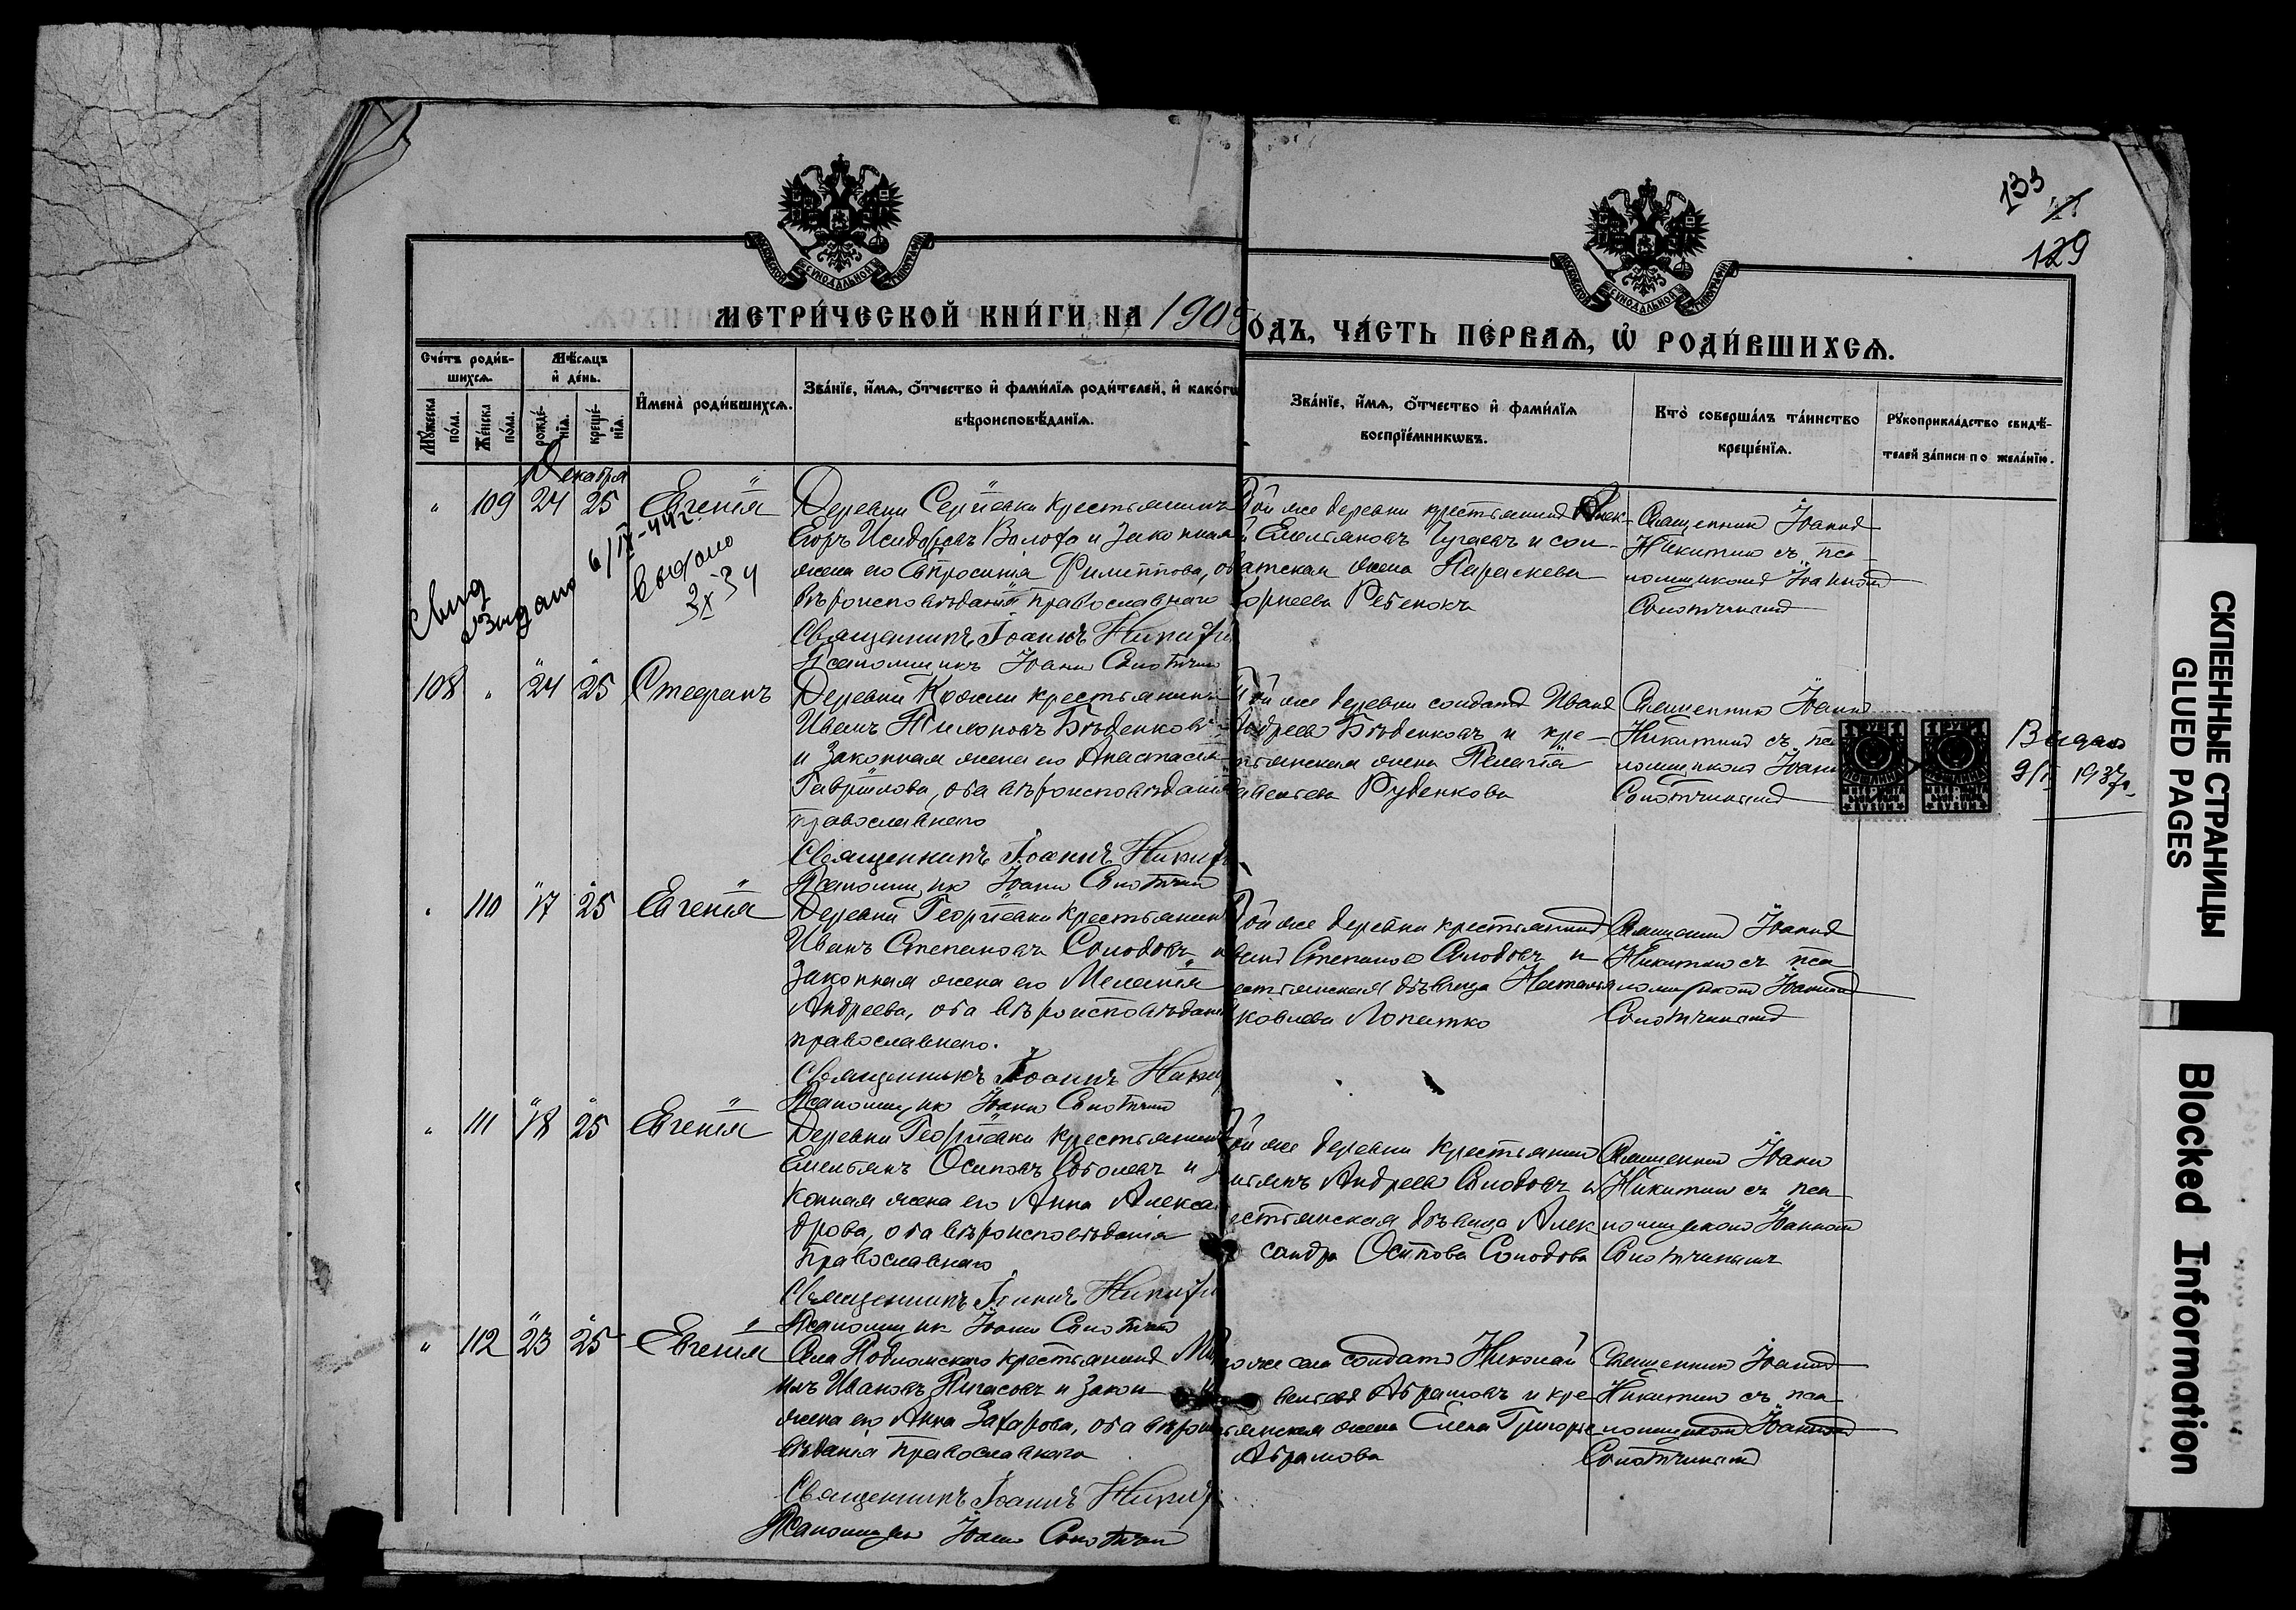 133
129
МОСКОВСКОЙ СѴНОДАЛЬНОЙ ТИПОГРАФІИ
МОСКОВСКОЙ СѴНОДАЛЬНОЙ ТИПОГРАФІИ
МЕТРИ́ЧЕСКОЙ КНИ́ГИ НА 1905
ОДЪ, ЧА́СТЬ ПЕ́РВАѦ, Ѡ҆ РОДИ́ВШИХСѦ.
Сче́тъ роди́в-
шихсѧ.
Мѣ́сѧцъ
и҆ де́нь.
Мꙋ́жеска
по́ла.
Же́нска
по́ла.
рожде́-
нїѧ.
креще́-
нїѧ.
И҆мена̀ роди́вшихсѧ.
Зва́нїе, и҆́мѧ, ѻ҆́тчество и҆ фами́лїѧ роди́телей, и҆ како́гѡ
вѣроисповѣ́данїѧ.
Зва́нїе, и҆́мѧ, ѻ҆́тчество и҆ фами́лїѧ
воспрїе́мникѡвъ.
Кто̀ соверша́лъ та́инство
креще́нїѧ.
Рꙋкоприкла́дство свидѣ́-
телей за́писи по жела́нїю.
Декабря
" 109 24 25 Евгенія
Деревни Сергіевки крестьянинъ
Егоръ Исидоровъ Волофо и законная
жена его Евфросинія Филиппова, о
вѣроисповѣданія православнаго
Священникъ Іоаннъ Никити
Псаломщикъ Іоанн Слотчин
той же деревни крестьянинъ Алек-
Емельяновъ Чугаевъ и сол-
датская жена Параскева
Корнеева Ребенокъ
Священник Іоаннъ
Никитин съ пса-
ломщикомъ Іоанномъ
Слотчинымъ
Свид
выдано 6/IX-44 г.
Выдано
3-34
X
108 " 24 25 Стефанъ
Деревни Кожли крестьянинъ
Иванъ Тихоновъ Бѣденковъ
и законная жена его Анастасія
Гавріилова, оба вѣроисповѣданія
православнаго
Священникъ Іоаннъ Никити
Псаломщик Іоанн Слотчин
той же деревни солдатъ Иванъ
Андреев Бѣденковъ и кре-
стьянская жена Пелагія
Савельева Руденкова
Священник Іоаннъ
Никитинъ съ пса
ломщикомъ Іоанн
Слотчинымъ
Выдано
9/ 1937 г.
" 110 17 25 Евгенія
Деревни Георгіевки крестьянин
Иванъ Степановъ Солодовъ и
законная жена его Меланія
Андреева, оба вѣроисповѣдані
православнаго.
Священникъ Іоаннъ Никит
Псаломщик Іоанн Слотчин
той же деревни крестьянинъ
Степанов Солодовъ и
крестьянская дѣвица Наталья
Яковлева Лопатко
Священник Іоаннъ
Никитин съ пса
ломщикомъ Іоанномъ
Слотчинымъ
" 111 18 25 Евгенія
Деревни Георгіевки крестьянин
Емельянъ Осиповъ Соболевъ и за
конная жена его Анна Алексан
дрова, оба вѣроисповѣданія
православнаго
Священникъ Іоаннъ Никити
Псаломщик Іоанн Слотчин
той же деревни крестьянин
Андреев Солодовъ и
крестьянская дѣвица Алек
сандра Осипова Солодова
Священник Іоанн
Никитин съ пса
ломщиком Іоанном
Слотчинымъ
" 112 23 25 Евгенія
Села Подломскаго крестьянинъ Ми
илъ Ивановъ Пигасовъ и закон
жена его Анна Захарова, оба вѣроис
вѣданія православнаго
Священникъ Іоаннъ Никит
Псаломщик Іоанн Слотчин
того же села солдатъ Николай
Абрамовъ и кре-
стьянская жена Елена Григорье
Абрамова
Священник Іоаннъ
Никитин съ пса
ломщикомъ Іоанномъ
Слотчинымъ
СКЛЕЕННЫЕ СТРАНИЦЫ
GLUED PAGES
Blocked Information